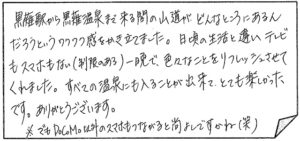 黒薙駅から黒薙温泉まで来る間の山道がどんなところにあるん
だろうというワクワク感をかき立てました。日頃の生活と違いテレビ
もスマホもない(制限のある)一晩で、色々なことをリフレッシュさせて
くれました。すべての温泉にも入ることが出来て、とても楽しかった
です。ありがとうございます。
※でもDoCoMo以外のスマホもつながると尚よしですかね(笑)